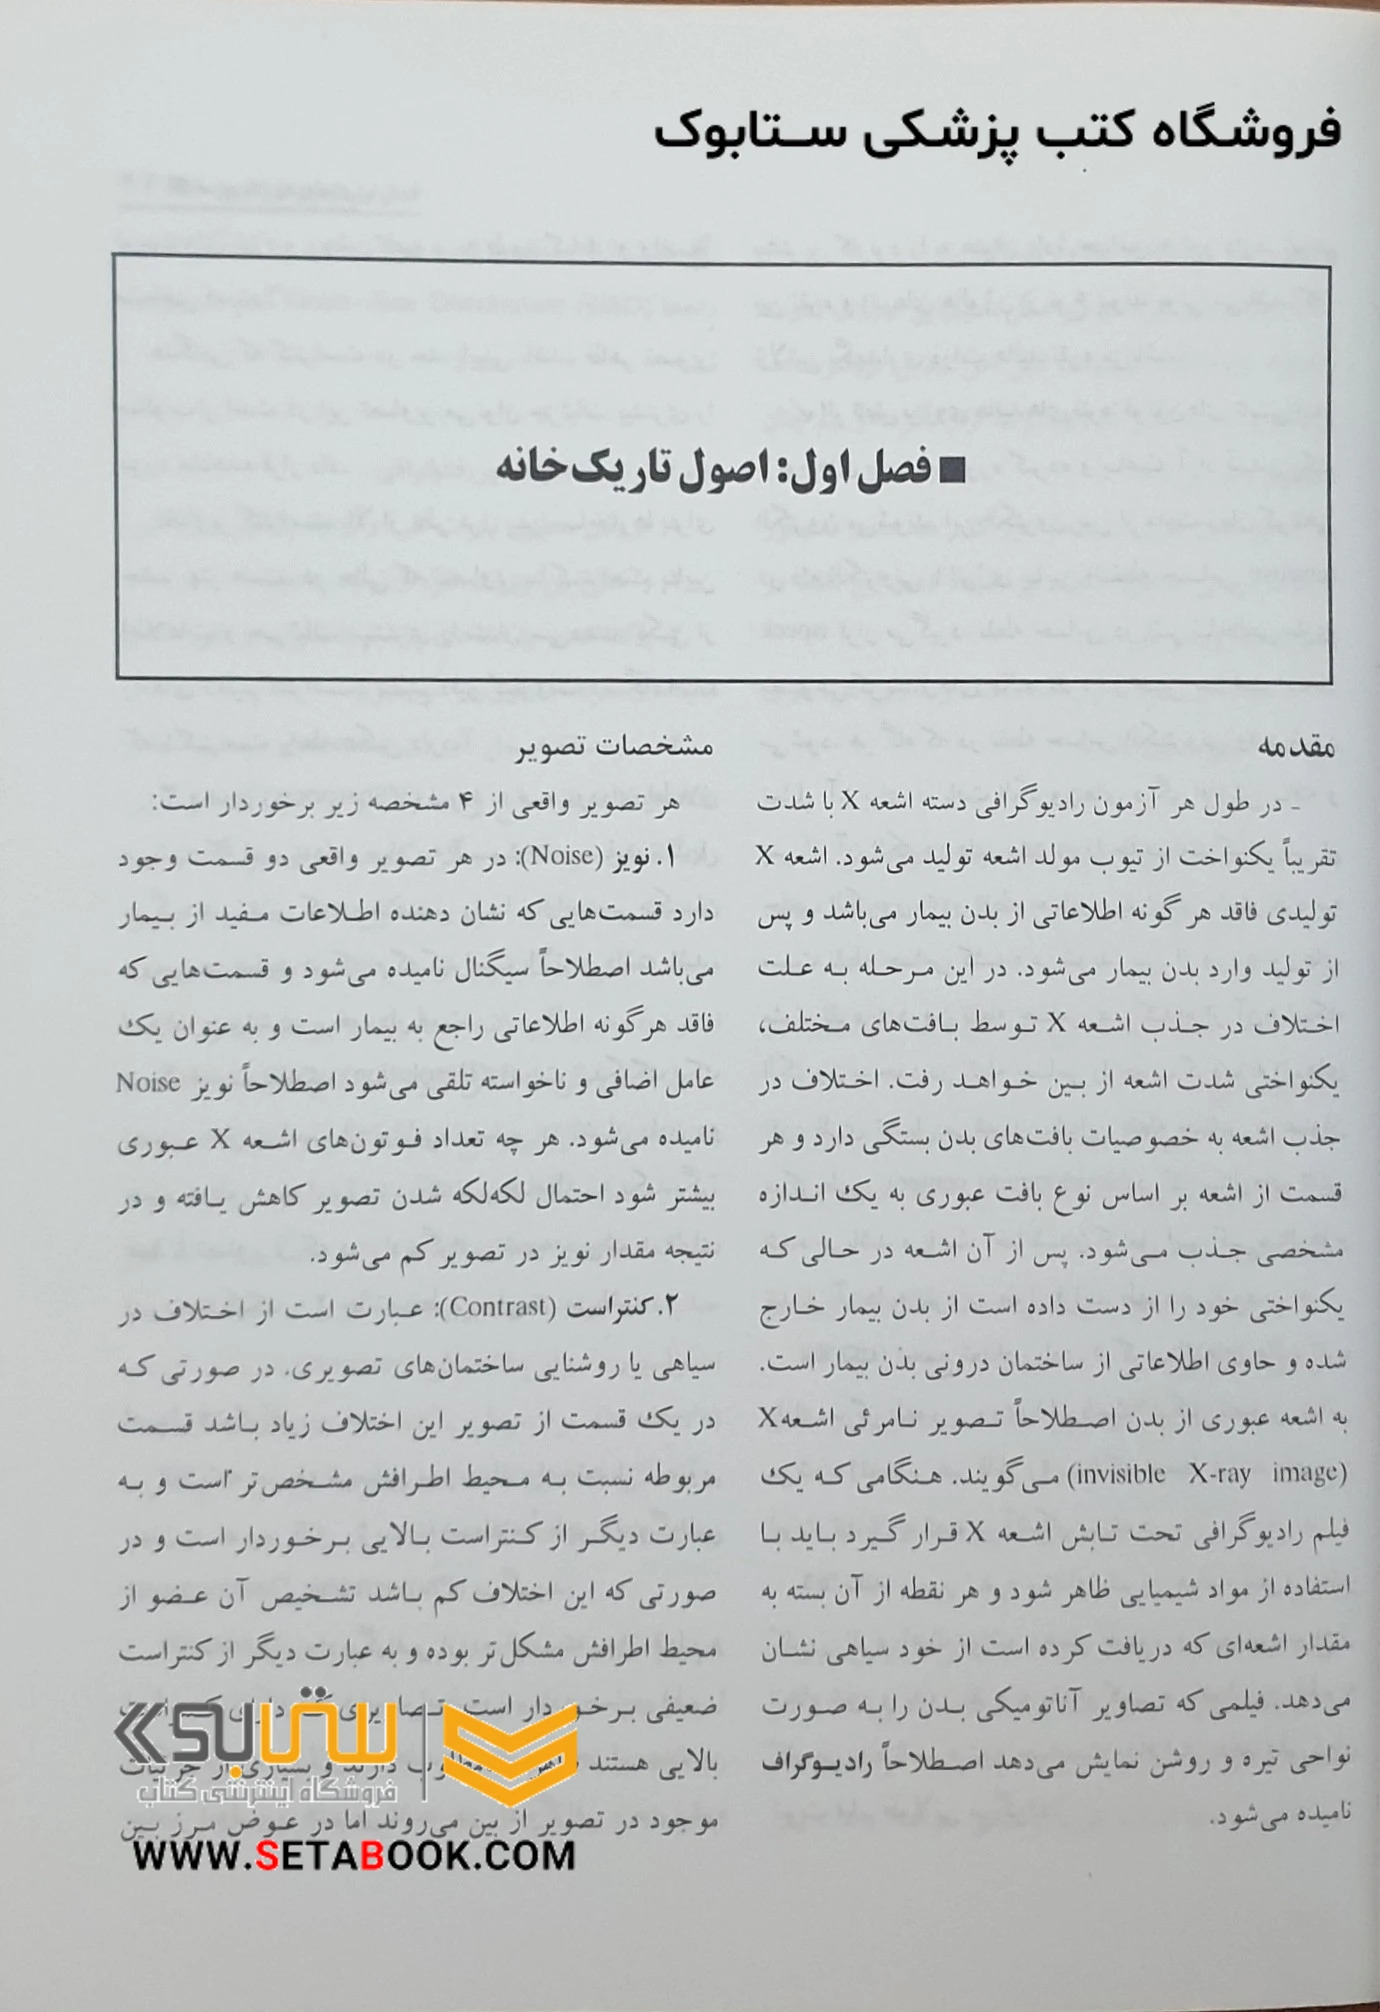 فروشگاه کتب پزشکی ستابوک
■ فصل اول: اصول تاریک‌خانه
مقدمه
ـ در طول هر آزمون رادیوگرافی دسته اشعه X با شدت
تقریباً یکنواخت از تیوب مولد اشعه تولید می‌شود. اشعه X
تولیدی فاقد هر گونه اطلاعاتی از بدن بیمار می‌باشد و پس
از تولید وارد بدن بیمار می‌شود. در این مرحله به علت
اختلاف در جذب اشعه X توسط بافت‌های مختلف،
یکنواختی شدت اشعه از بین خواهد رفت. اختلاف در
جذب اشعه به خصوصیات بافت‌های بدن بستگی دارد و هر
قسمت از اشعه بر اساس نوع بافت عبوری به یک اندازه
مشخصی جذب می‌شود. پس از آن اشعه در حالی که
یکنواختی خود را از دست داده است از بدن بیمار خارج
شده و حاوی اطلاعاتی از ساختمان درونی بدن بیمار است.
به اشعه عبوری از بدن اصطلاحاً تصویر نامرئی اشعه X
(invisible X-ray image) می‌گویند. هنگامی که یک
فیلم رادیوگرافی تحت تابش اشعه X قرار گیرد باید با
استفاده از مواد شیمیایی ظاهر شود و هر نقطه از آن بسته به
مقدار اشعه‌ای که دریافت کرده است از خود سیاهی نشان
می‌دهد. فیلمی که تصاویر آناتومیکی بدن را به صورت
نواحی تیره و روشن نمایش می‌دهد اصطلاحاً رادیوگراف
نامیده می‌شود.
مشخصات تصویر
هر تصویر واقعی از ۴ مشخصه زیر برخوردار است:
۱. نویز (Noise): در هر تصویر واقعی دو قسمت وجود
دارد قسمت‌هایی که نشان دهنده اطلاعات مفید از بیمار
می‌باشد اصطلاحاً سیگنال نامیده می‌شود و قسمت‌هایی که
فاقد هرگونه اطلاعاتی راجع به بیمار است و به عنوان یک
عامل اضافی و ناخواسته تلقی می‌شود اصطلاحاً نویز Noise
نامیده می‌شود. هر چه تعداد فوتون‌های اشعه X عبوری
بیشتر شود احتمال لکه‌لکه شدن تصویر کاهش یافته و در
نتیجه مقدار نویز در تصویر کم می‌شود.
۲. کنتراست (Contrast): عبارت است از اختلاف در
سیاهی یا روشنایی ساختمان‌های تصویری. در صورتی که
در یک قسمت از تصویر این اختلاف زیاد باشد قسمت
مربوطه نسبت به محیط اطرافش مشخص‌تر است و به
عبارت دیگر از کنتراست بالایی برخوردار است و در
صورتی که این اختلاف کم باشد تشخیص آن عضو از
محیط اطرافش مشکل‌تر بوده و به عبارت دیگر از کنتراست
ضعیفی برخوردار است
بالایی هستند دارند و بسیاری از جزئیات
موجود در تصویر از بین می‌روند اما در عوض مرز بین
ستابوک
فروشگاه اینترنتی کتاب
WWW.SETABOOK.COM